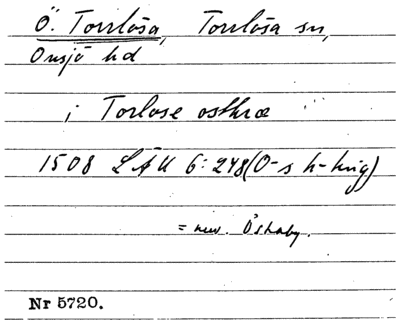 Ö. Torrlösa, Torrlösa sn,
Onsjö hd
i Torlose osthræ
1508 LÄU 6:248 (O-s h-hrig)
= nuv. Östraby.
Nr 5720.